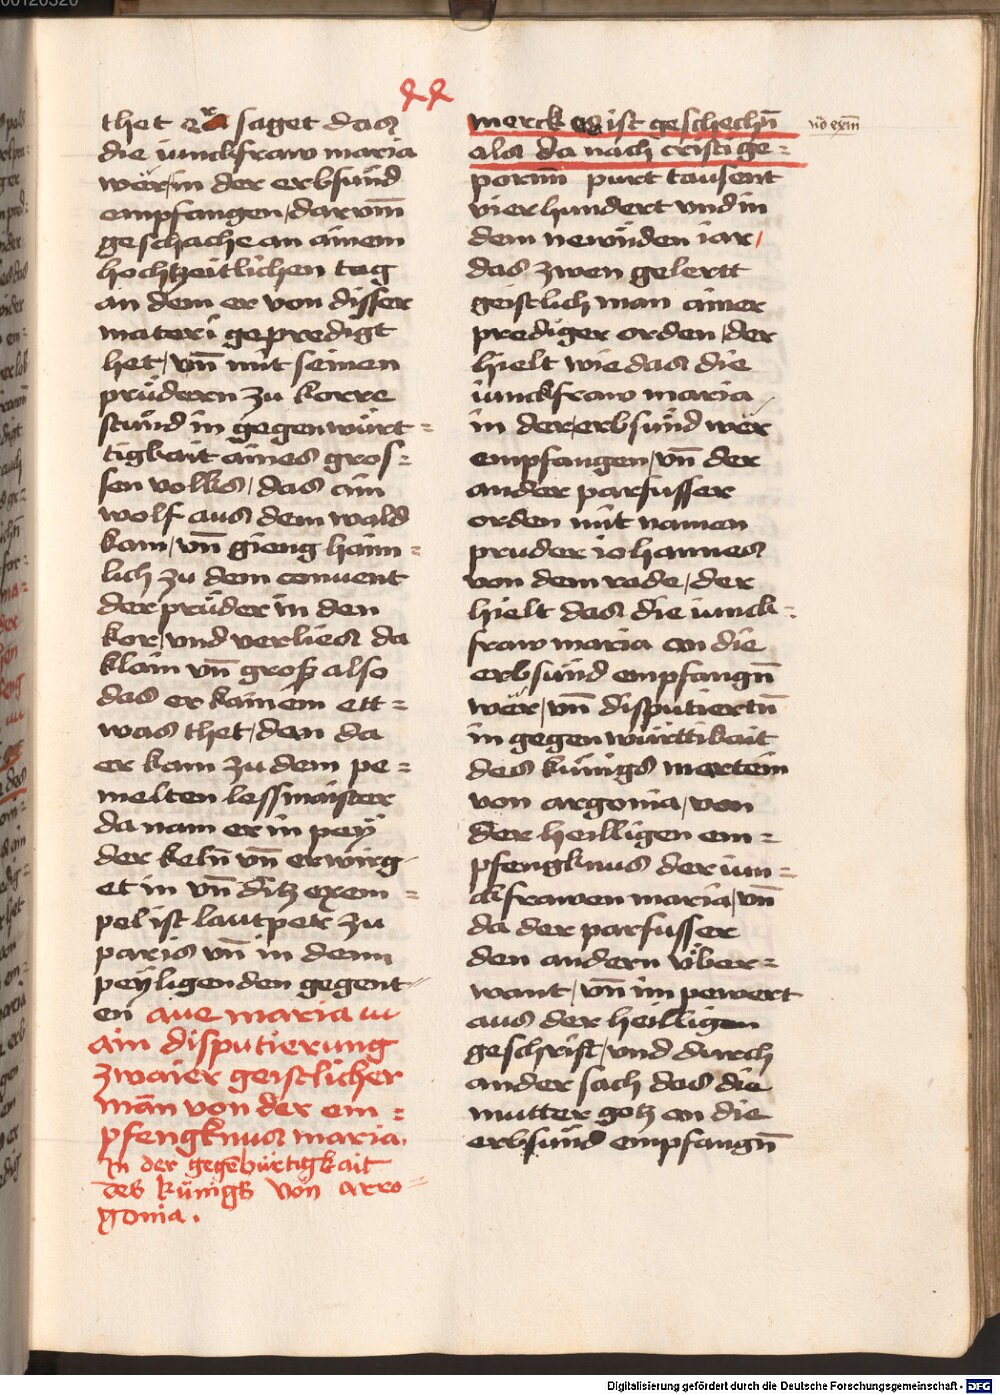 thet saget das
die iunckfraw maria
wër in der erbsünd
empfangen / darvm̄
geschache an ainem
hochtzeitlichen tag
an dem er von disser
materi gepredigt
het / vn̄ mit seinen
prüdern zu korre
stünd in gegenwürt=
tigkait aines gros=
sen volks / das ain
wolf aus dem wald
kam / vn̄ gieng haim=
lich zu dem conuent
der prüder in den
kor / vnd verlies da
klain vn̄ groß also
das er kainem ett=
was thet / den da
er kam zu dem pe=
melten lessmaister
da nam er in pey
der keln̄ vn̄ erwirg
et in vn̄ ditz exem=
pel ist lautper zu
paris vn̄ in denn
peyligenden gegent
en aue maria
ain disputierung
zwaier geistlicher
man̄ von der em=
pfengknus maria.
In der gegēbürtigkait
des künigs von arro=
gonia.
merck es ist geschechn̄
als da nach cristi ge=
porim̄ purt tausent
vierhundert vnd in
dem newnden iar /
das zwen gelertt
geistlich man ainer
prediger orden / der
hielt wie das die
iunckfraw maria
in der erbsünd wër
empfangen / vn̄ der
ander parfusser
orden mit namen
pruder iohannes
von dem rode / der
hielt das die iunck=
fraw maria on die
erbsünd empfangn̄
wër / vn̄ disputiertn̄
in gegenwürttikait
des künigs mertein
von argonia / von
der heilligen em=
pfengknus der iun=
ckfrawen maria / vn̄
da der parfusser
den andern über=
want / vn̄ im pewert
aus der heilligen
geschrift / vnd durch
ander sach das die
mutter gotz on die
erbsünd empfangn̄
00120320
Digitalisierung gefördert durch die Deutsche Forschungsgemeinschaft - DFG